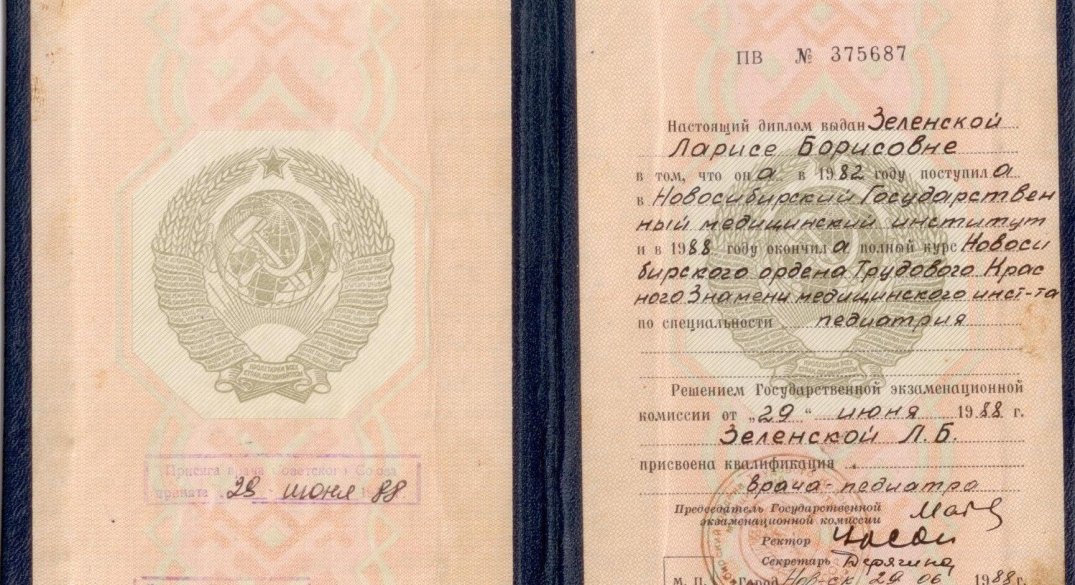 Присяга врача Советского Союза
принята 29 июня 88
ПВ № 375687
Настоящий диплом выдан Зеленской
Ларисе Борисовне
в том, что она в 1982 году поступила
в Новосибирский Государствен
ный медицинский институт
и в 1988 году окончила полный курс Новоси
бирского ордена Трудового Крас
ного Знамени медицинского инст-та
по специальности педиатрия
Решением Государственной экзаменационной
комиссии от „29“ июня 1988 г.
Зеленской Л.Б.
присвоена квалификация
врача-педиатра
Председатель Государственной
экзаменационной комиссии
Ректор
Секретарь
М. П. Город Нов-ск 29 06 1988 г.